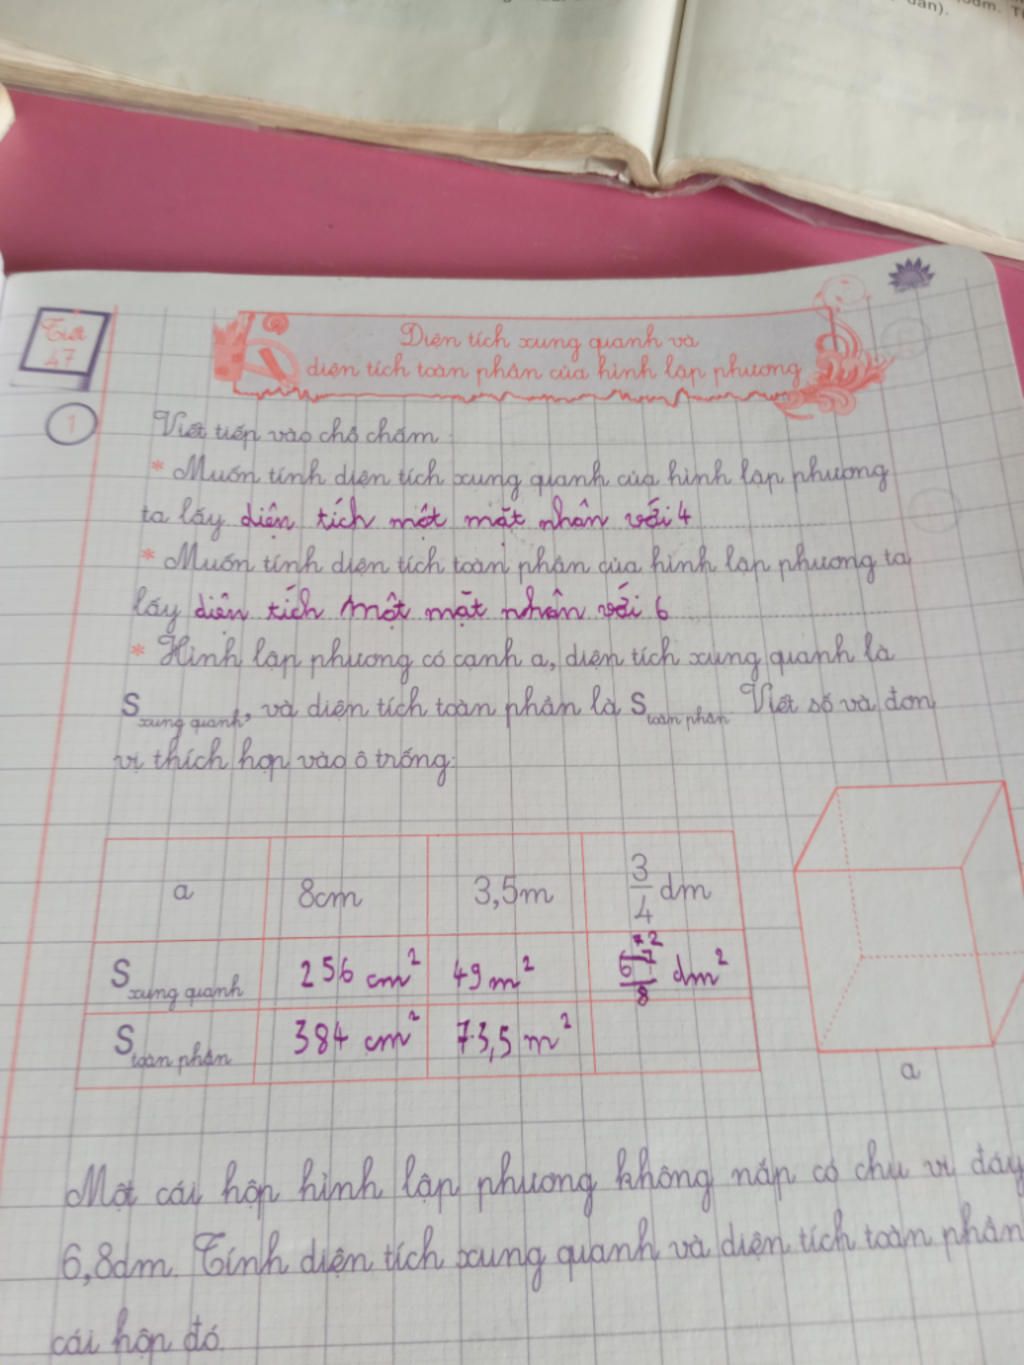 dàn).
Tiết
47
Diện tích xung quanh và
diện tích toàn phần của hình lập phương
1
Viết tiếp vào chỗ chấm
* Muốn tính diện tích xung quanh của hình lập phương
ta lấy diện tích một mặt nhân với 4
* Muốn tính diện tích toàn phần của hình lập phương ta
lấy diện tích một mặt nhân với 6
* Hình lập phương có cạnh a, diện tích xung quanh là
S xung quanh, và diện tích toàn phần là S toàn phần. Viết số và đơn
vị thích hợp vào ô trống:
a 8cm 3,5m 3/4 dm
S xung quanh 256 cm² 49 m² dm²
S toàn phần 384 cm² 73,5 m²
a
Một cái hộp hình lập phương không nắp có chu vi đáy
6,8dm. Tính diện tích xung quanh và diện tích toàn phần
cái hộp đó.